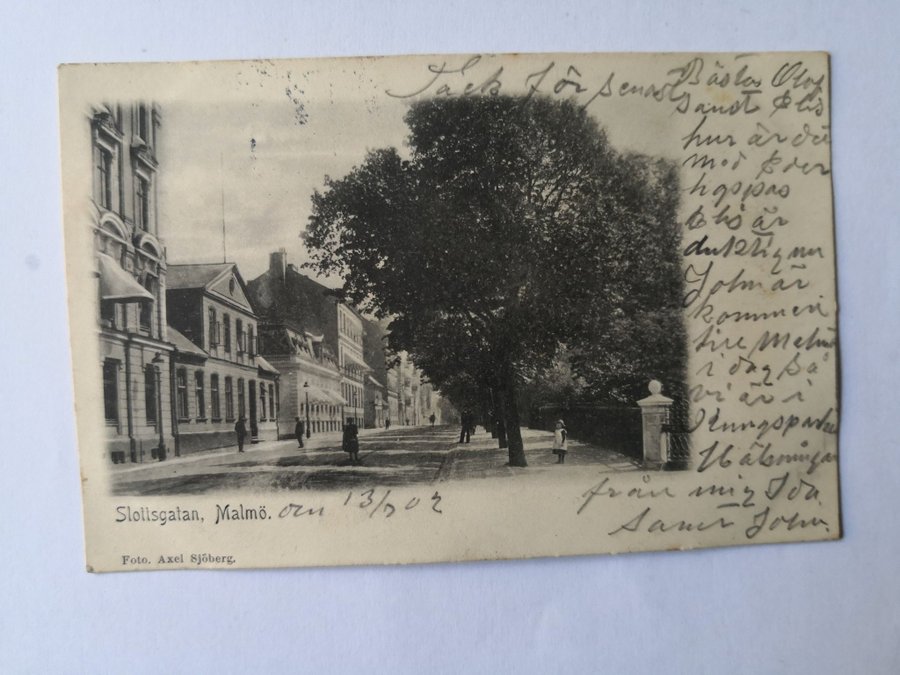 Tack för senast
Bästa Olof
samt Elis
hur är dä
med Eder
hoppas
Elis är
duktig nu
John är
kommen
till Malmö
i dag så
vi är i
Kungsparken
Hälsningar
från mig Ida
Samt John.
Slottsgatan, Malmö. den 13/7 02
Foto. Axel Sjöberg.